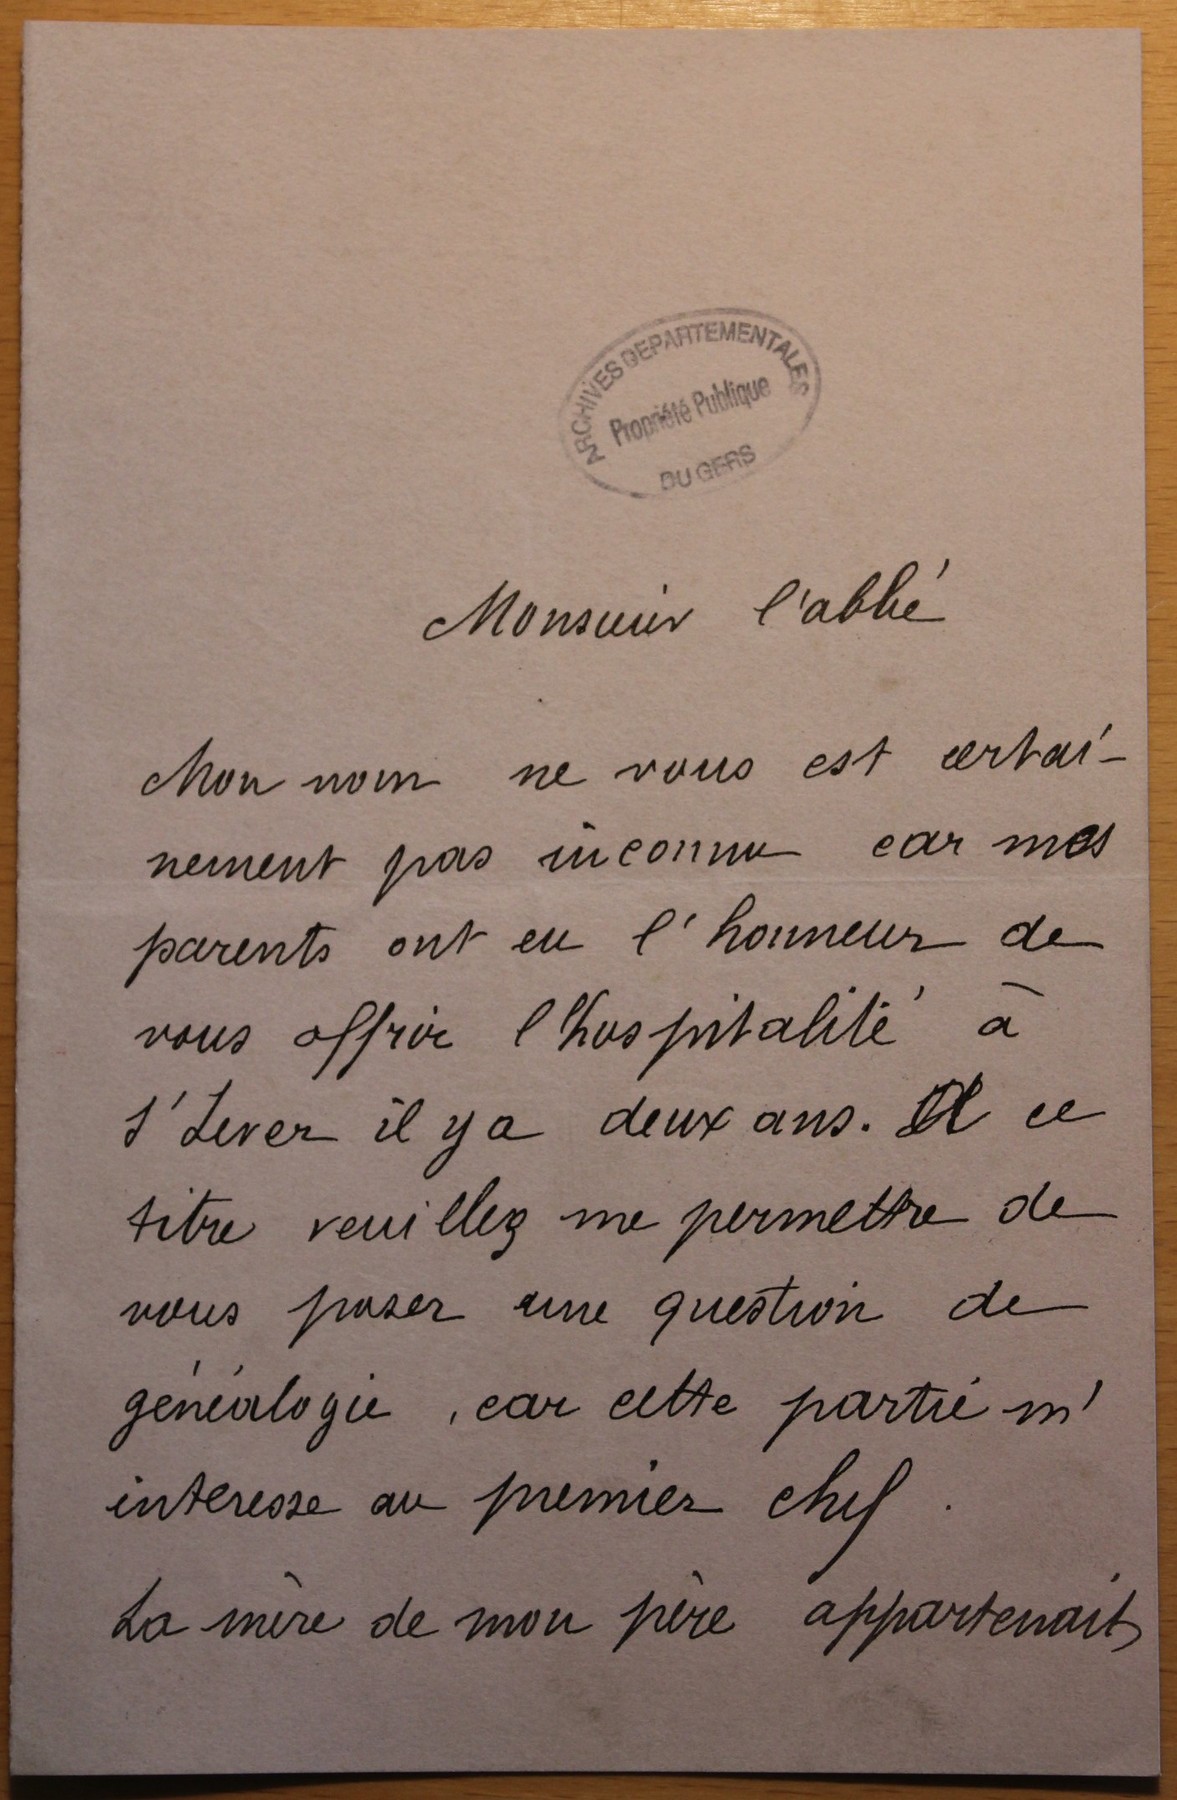 ARCHIVES DEPARTEMENTALES
Propriété Publique
DU GERS
Monsieur l'abbé
Mon nom ne vous est certai-
nement pas inconnu car mes
parents ont eu l'honneur de
vous offrir l'hospitalité à
St Sever il y a deux ans. A ce
titre veuillez me permettre de
vous poser une question de
généalogie, car cette partie m'
intéresse au premier chef.
La mère de mon père appartenait